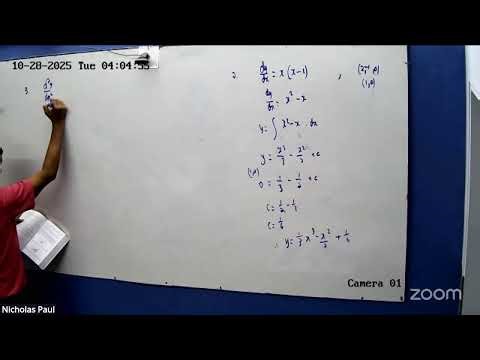 10-28-2025 Tue 04:04:55
3. d²y
2. dy/dx = x (x-1) ,
(1,0)
dy/dx = x² - x
y = ∫ x² - x dx
y = x³/3 - x²/2 + c
(1,0)
0 = 1/3 - 1/2 + c
c = 1/2 - 1/3
c = 1/6
∴ y = 1/3 x³ - x²/2 + 1/6
Camera 01
zoom
Nicholas Paul